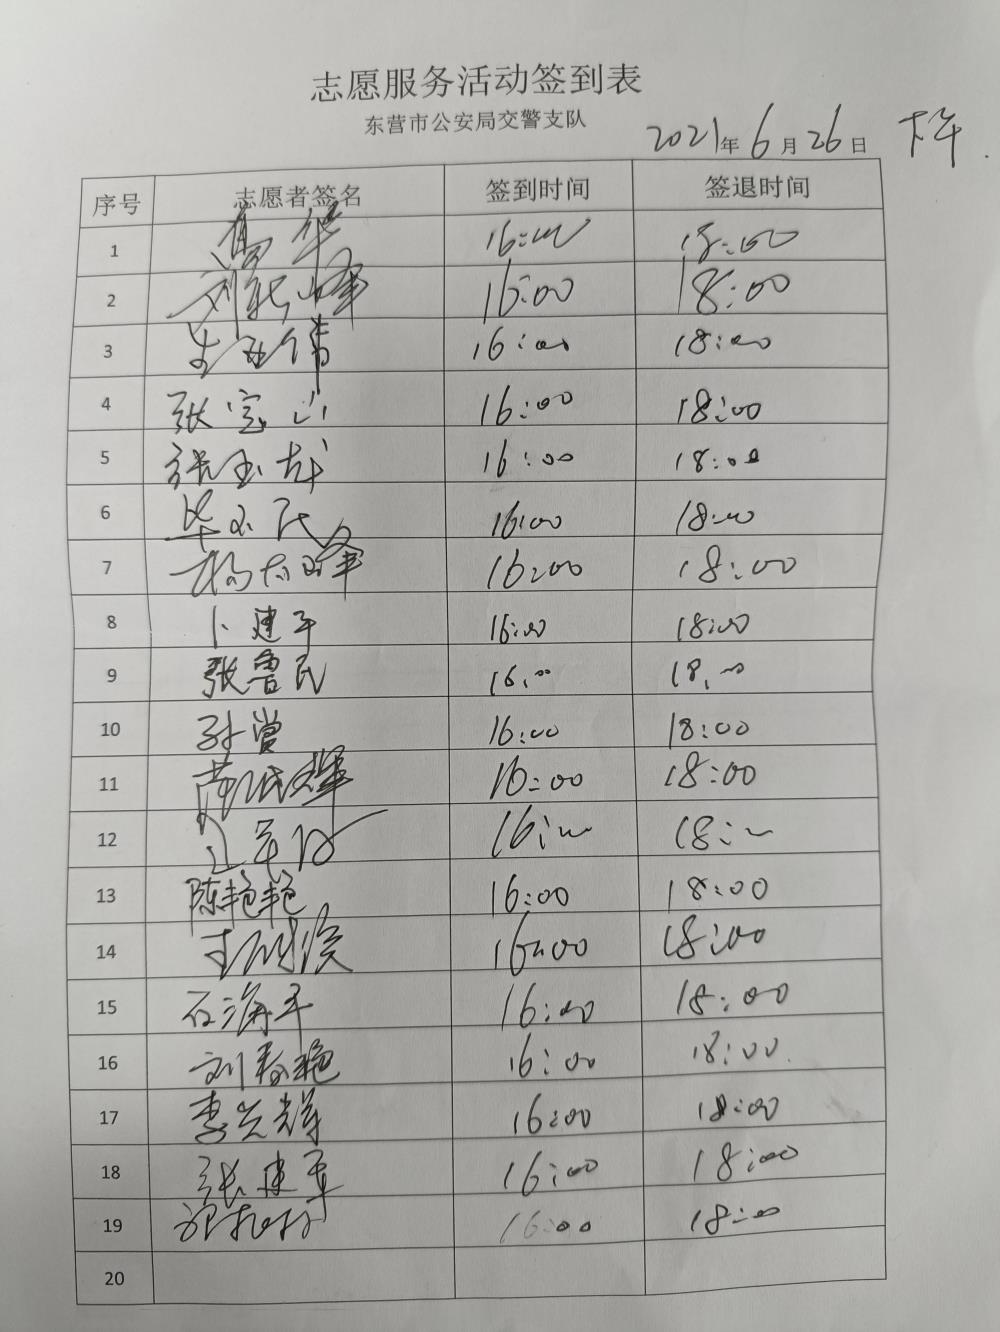 志愿服务活动签到表
东营市公安局交警支队
2021年6月26日 下午
序号 志愿者签名 签到时间 签退时间
1 16:00 18:00
2 16:00 18:00
3 16:00 18:00
4 张宝 16:00 18:00
5 张玉 16:00 18:00
6 毕 民 16:00 18:00
7 杨 16:00 18:00
8 卜建平 16:00 18:00
9 张鲁民 16:00 18:00
10 孙 16:00 18:00
11 16:00 18:00
12 16:00 18:00
13 陈艳艳 16:00 18:00
14 16:00 18:00
15 石海平 16:00 18:00
16 刘春艳 16:00 18:00
17 李光辉 16:00 18:00
18 张建军 16:00 18:00
19 16:00 18:00
20